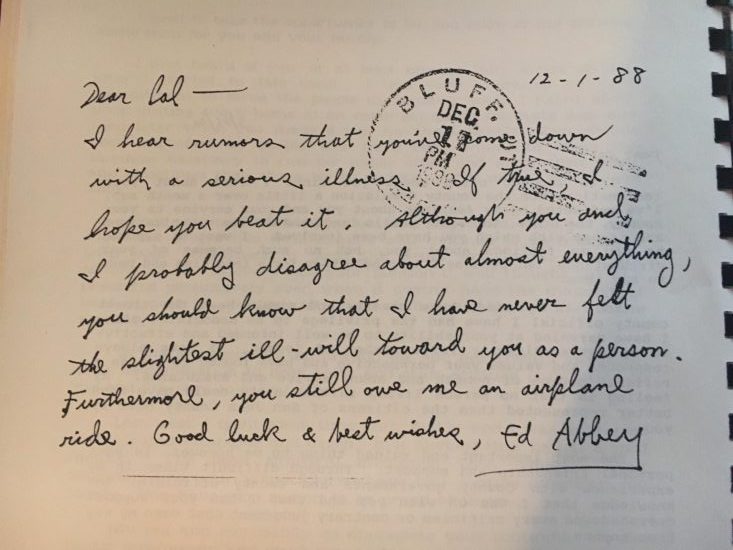 12-1-88
Dear Cal —
BLUFF, UT
DEC
PM
I hear rumors that you've come down
with a serious illness. If true, I
hope you beat it. Although you and
I probably disagree about almost everything,
you should know that I have never felt
the slightest ill-will toward you as a person.
Furthermore, you still owe me an airplane
ride. Good luck & best wishes, Ed Abbey